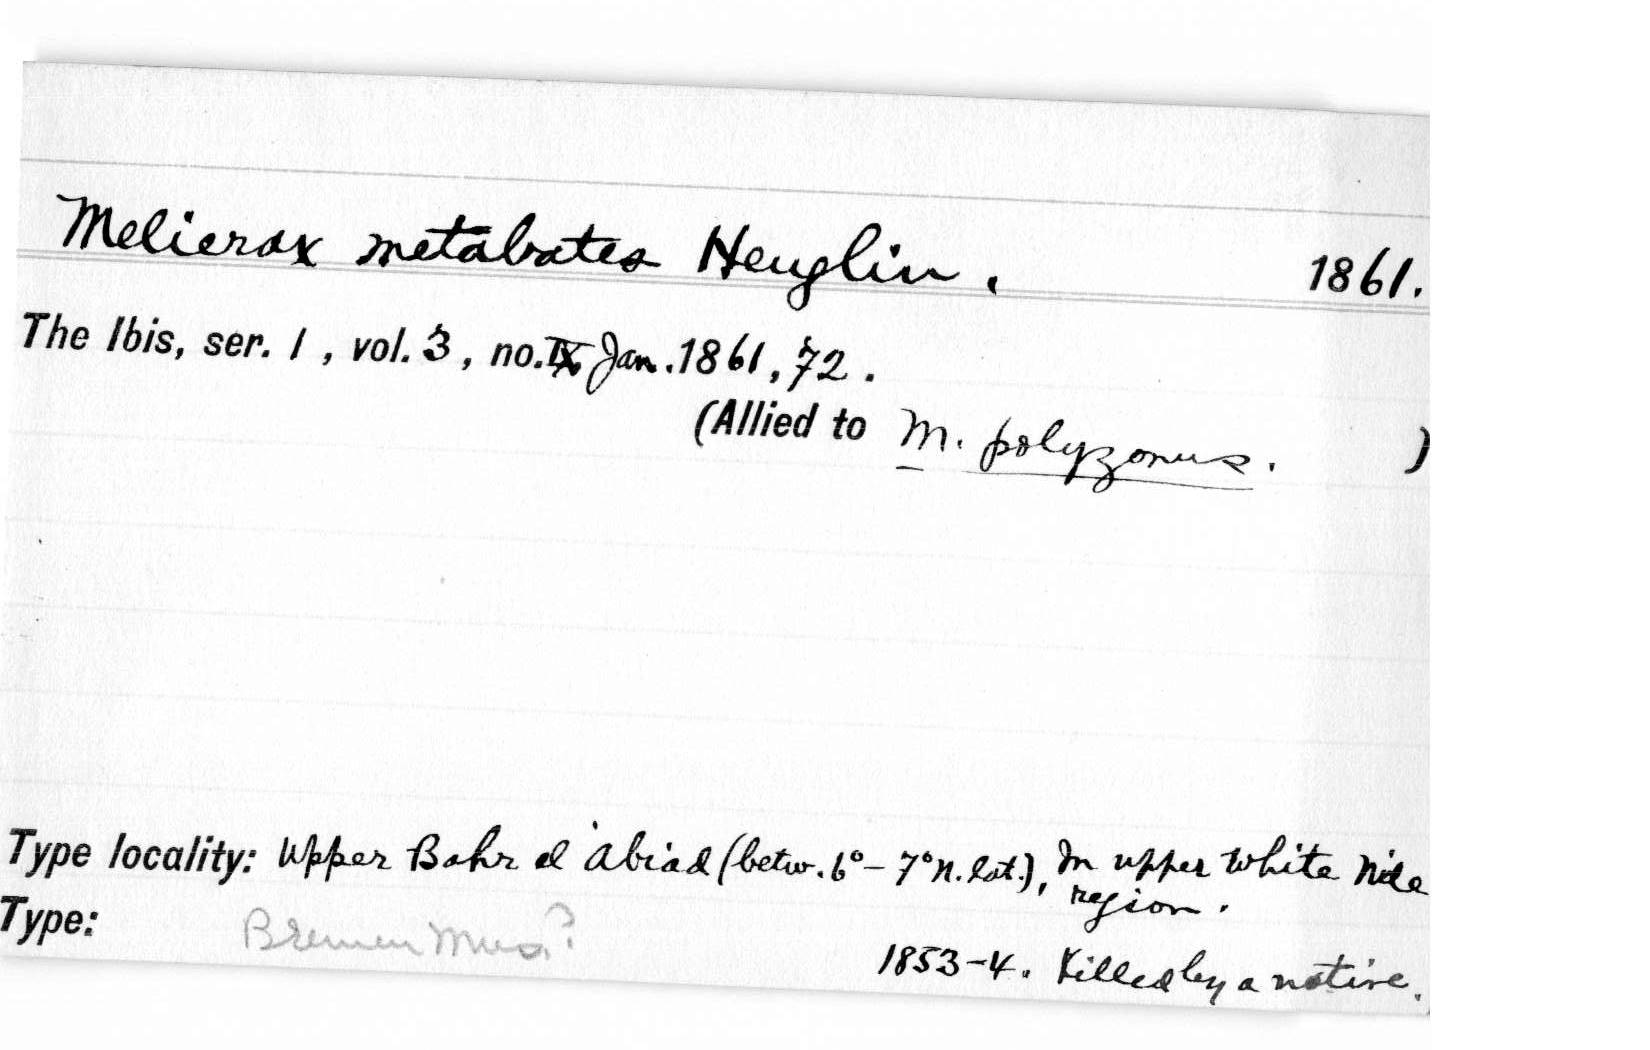 Melierax metabates Heuglin. 1861.
The Ibis, ser. 1, vol. 3, no. IX Jan. 1861, 72.
(Allied to M. polyzonus. )
Type locality: Upper Bahr el 'Abiad (betw. 6°-7° N. lat.), In upper White Nile
region.
Type: Bremen Mus?
1853-4. Killed by a native.